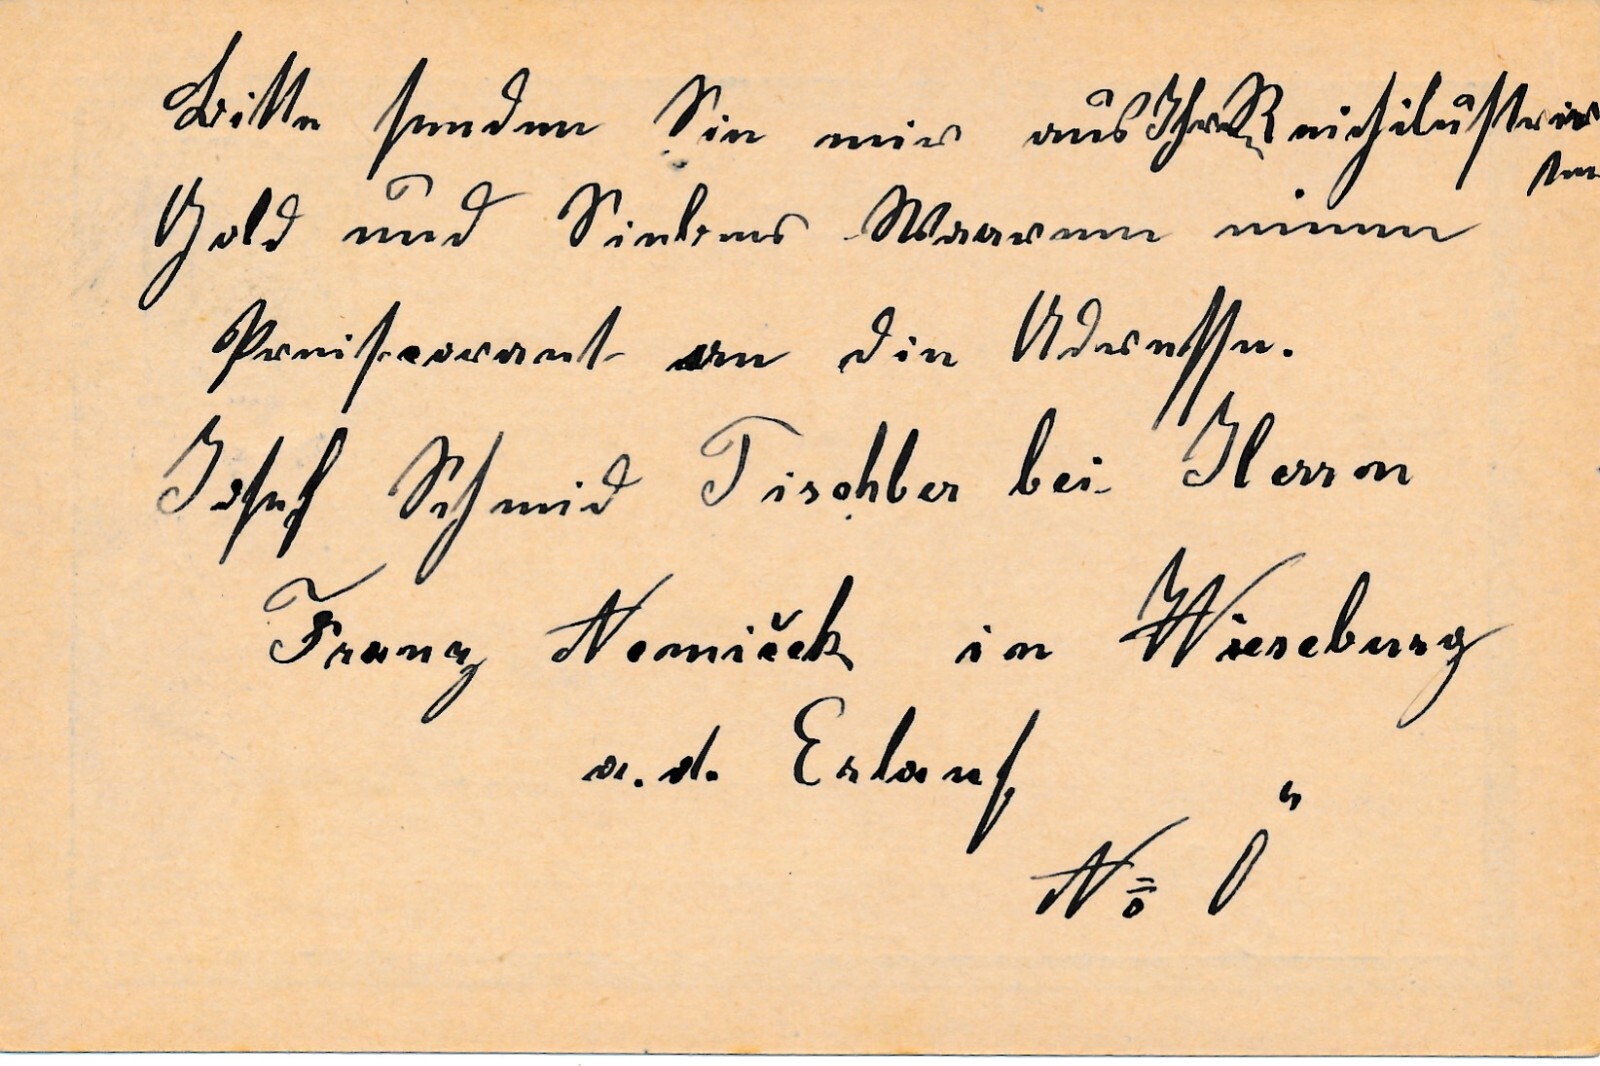 Bitte senden Sie mir aus Ihr Reichilustrier
ten
Gold und Sielber Waaren einen
Preiscorant an die Adresse.
Josef Schmid Tischler bei Herron
Franz Nemiček in Wieseburg
a. d. Erlauf,
N⁰ Ö